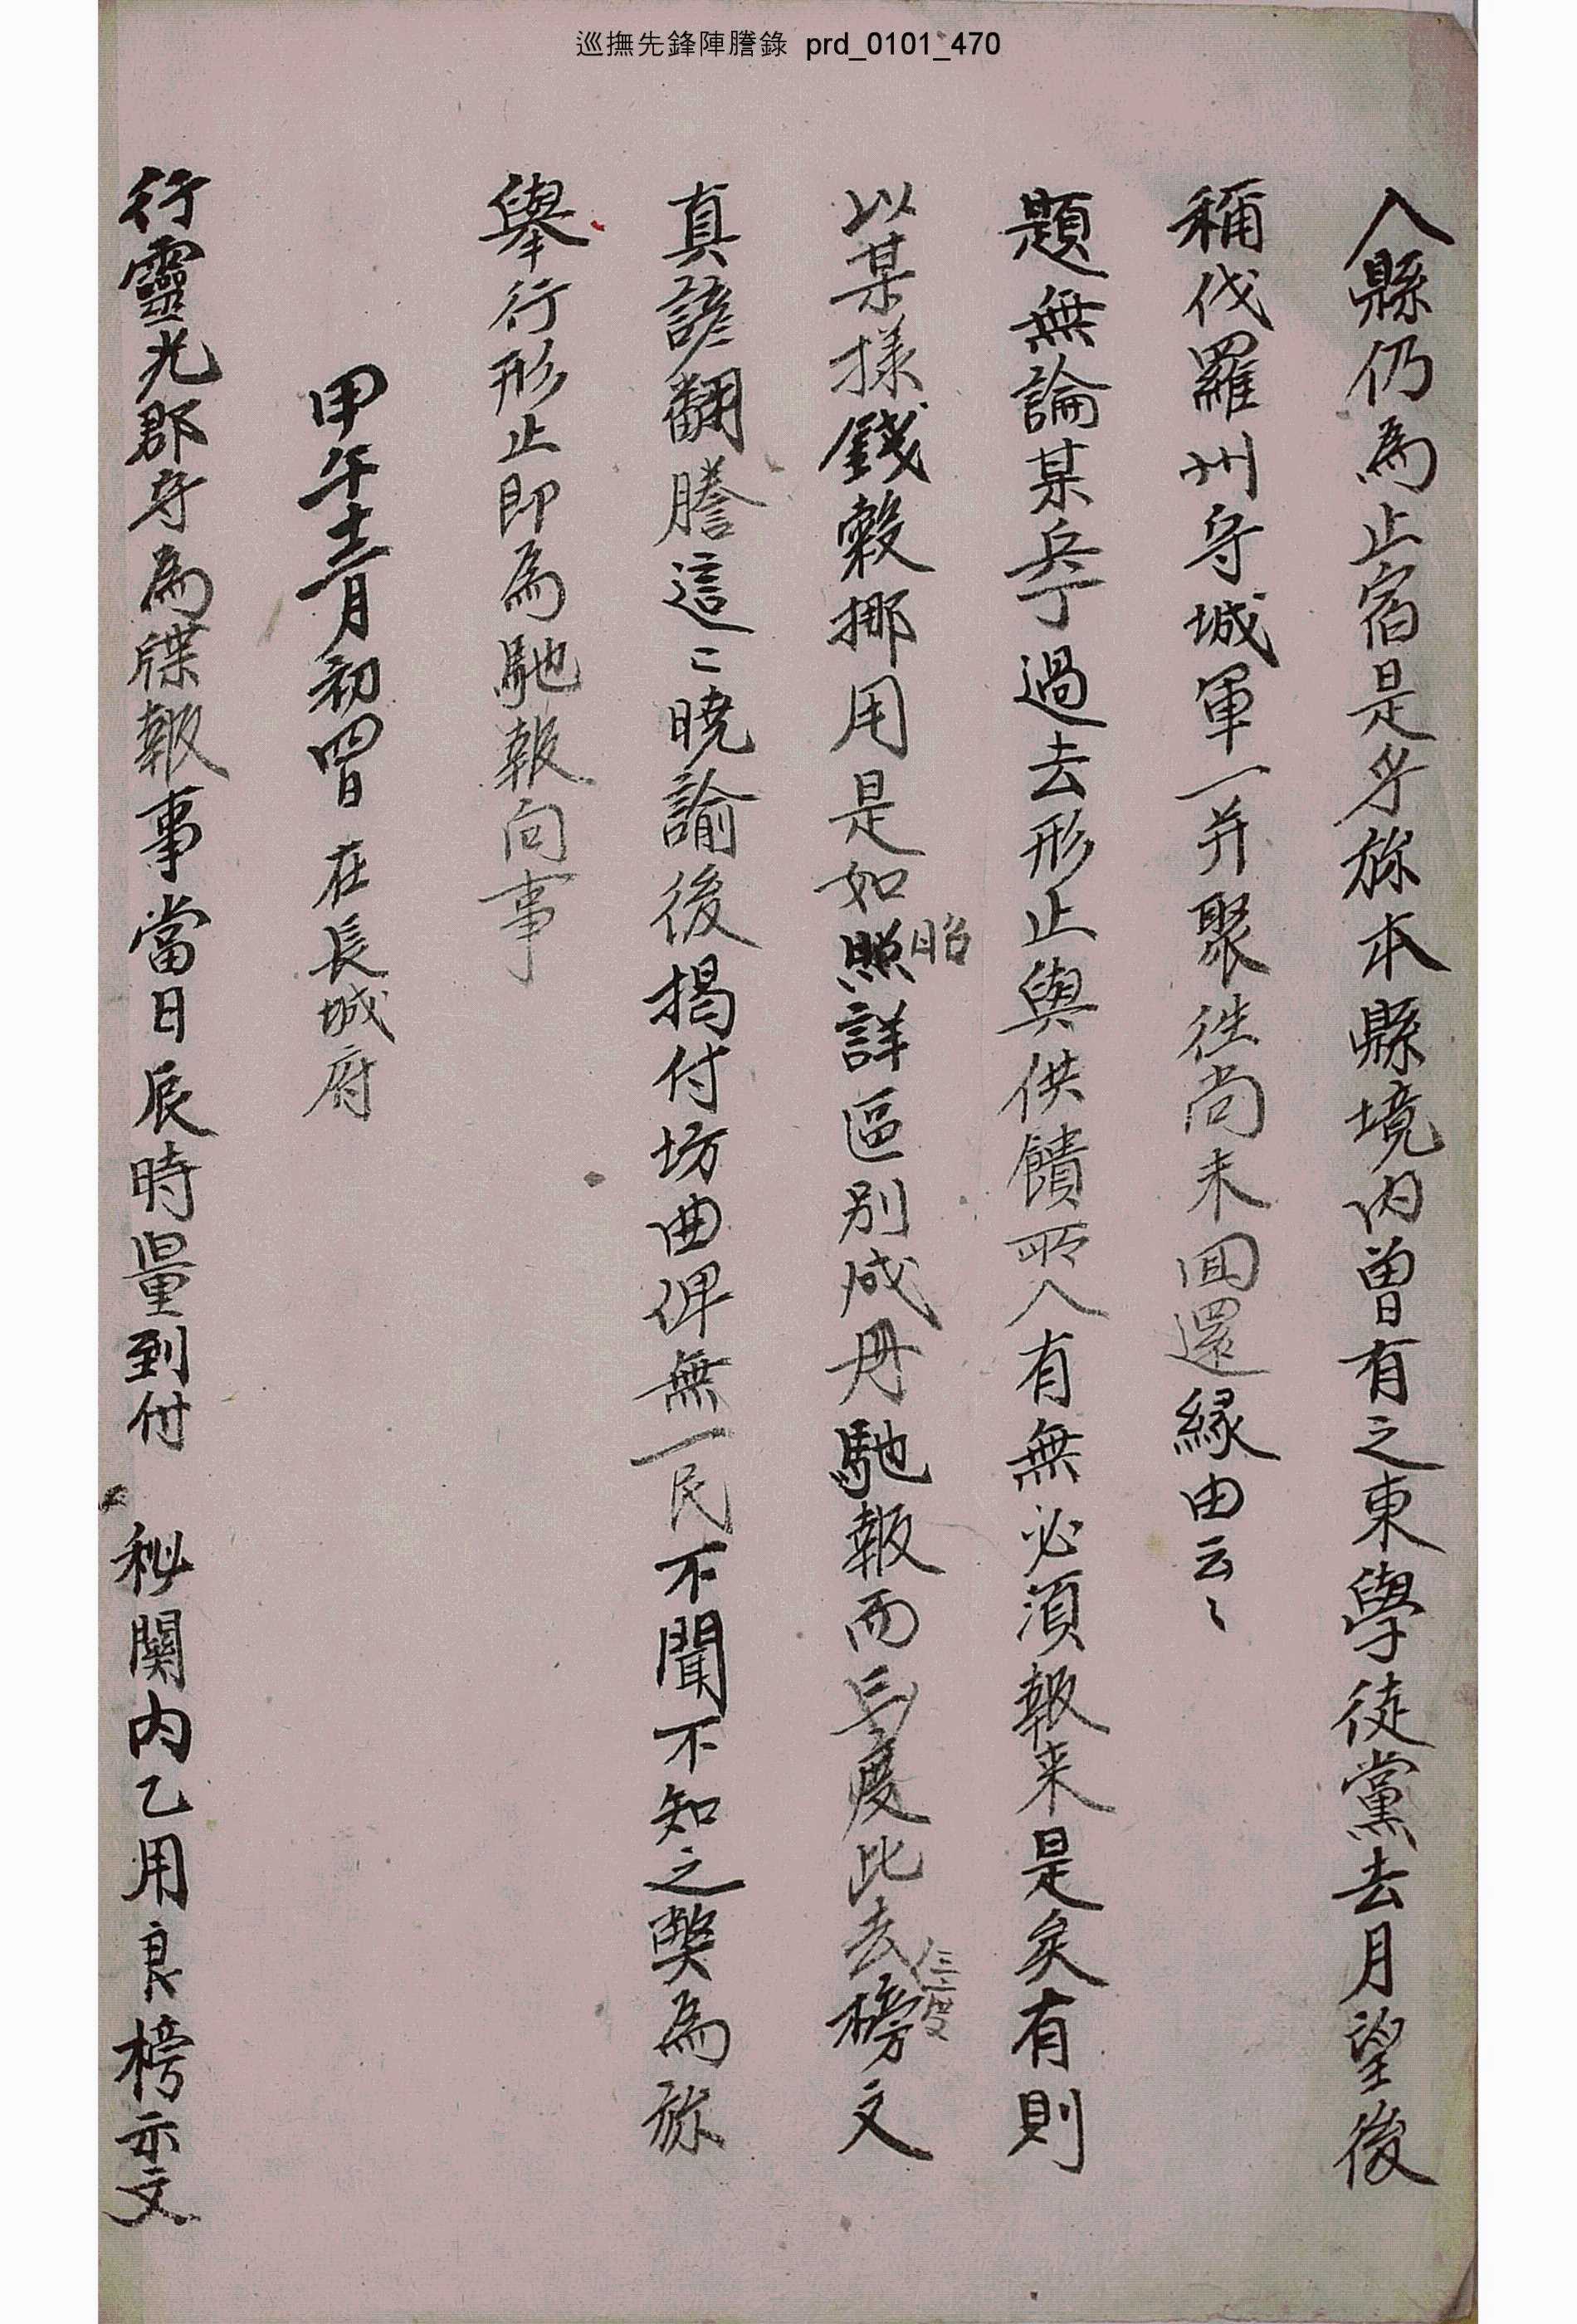 巡撫先鋒陣謄錄 prd_0101_470
入縣仍爲止宿是乎旀本縣境內曾有之東學徒黨去月望後
稱伐羅州守城軍一并聚徃尙未回還緣由云〻
題無論某兵丁過去形止與供饋所入有無必須報来是矣有則
以某樣錢穀挪用是如照詳區別成冊馳報而馬廋此去榜文
昭
三度
真諺翻謄這〻曉諭後揭付坊曲俾無一民不聞不知之弊爲旀
擧行形止卽爲馳報向事
甲午十二月初四日 在長城府
行靈光郡守爲牒報事當日辰時量到付 秘關內乙用良榜示文